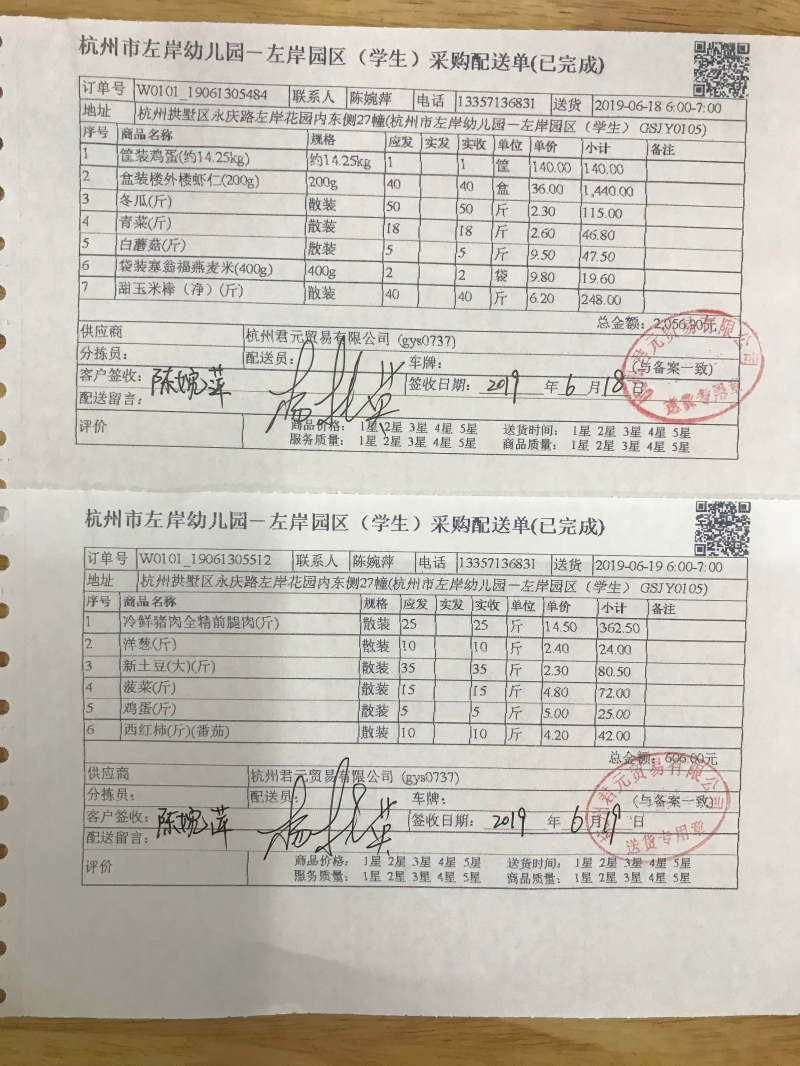 杭州市左岸幼儿园－左岸园区（学生）采购配送单(已完成)
订单号 W0101_19061305484 联系人 陈婉萍 电话 13357136831 送货 2019-06-18 6:00-7:00
地址 杭州拱墅区永庆路左岸花园内东侧27幢(杭州市左岸幼儿园－左岸园区（学生）GSJY0105)
序号 商品名称 规格 应发 实发 实收 单位 单价 小计 备注
1 筐装鸡蛋(约14.25kg) 约14.25kg 1 1 筐 140.00 140.00
2 盒装楼外楼虾仁(200g) 200g 40 40 盒 36.00 1,440.00
3 冬瓜(斤) 散装 50 50 斤 2.30 115.00
4 青菜(斤) 散装 18 18 斤 2.60 46.80
5 白蘑菇(斤) 散装 5 5 斤 9.50 47.50
6 袋装塞翁福燕麦米(400g) 400g 2 2 袋 9.80 19.60
7 甜玉米棒（净）(斤) 散装 40 40 斤 6.20 248.00
总金额：2,056.90元
供应商 杭州君元贸易有限公司 (gys0737)
分拣员： 配送员： 车牌： (与备案一致)
客户签收：陈婉萍 签收日期：2019 年 6 月 18 日
配送留言：
评价 商品价格： 1星 2星 3星 4星 5星 送货时间： 1星 2星 3星 4星 5星
服务质量： 1星 2星 3星 4星 5星 商品质量： 1星 2星 3星 4星 5星
君元贸易有限公司
送货专用章
杭州市左岸幼儿园－左岸园区（学生）采购配送单(已完成)
订单号 W0101_19061305512 联系人 陈婉萍 电话 13357136831 送货 2019-06-19 6:00-7:00
地址 杭州拱墅区永庆路左岸花园内东侧27幢(杭州市左岸幼儿园－左岸园区（学生）GSJY0105)
序号 商品名称 规格 应发 实发 实收 单位 单价 小计 备注
1 冷鲜猪肉全精前腿肉(斤) 散装 25 25 斤 14.50 362.50
2 洋葱(斤) 散装 10 10 斤 2.40 24.00
3 新土豆(大)(斤) 散装 35 35 斤 2.30 80.50
4 菠菜(斤) 散装 15 15 斤 4.80 72.00
5 鸡蛋(斤) 散装 5 5 斤 5.00 25.00
6 西红柿(斤)(番茄) 散装 10 10 斤 4.20 42.00
总金额：606.00元
供应商 杭州君元贸易有限公司 (gys0737)
分拣员： 配送员： 车牌： (与备案一致)
客户签收：陈婉萍 签收日期：2019 年 6 月 19 日
配送留言：
评价 商品价格： 1星 2星 3星 4星 5星 送货时间： 1星 2星 3星 4星 5星
服务质量： 1星 2星 3星 4星 5星 商品质量： 1星 2星 3星 4星 5星
君元贸易有限公司
送货专用章